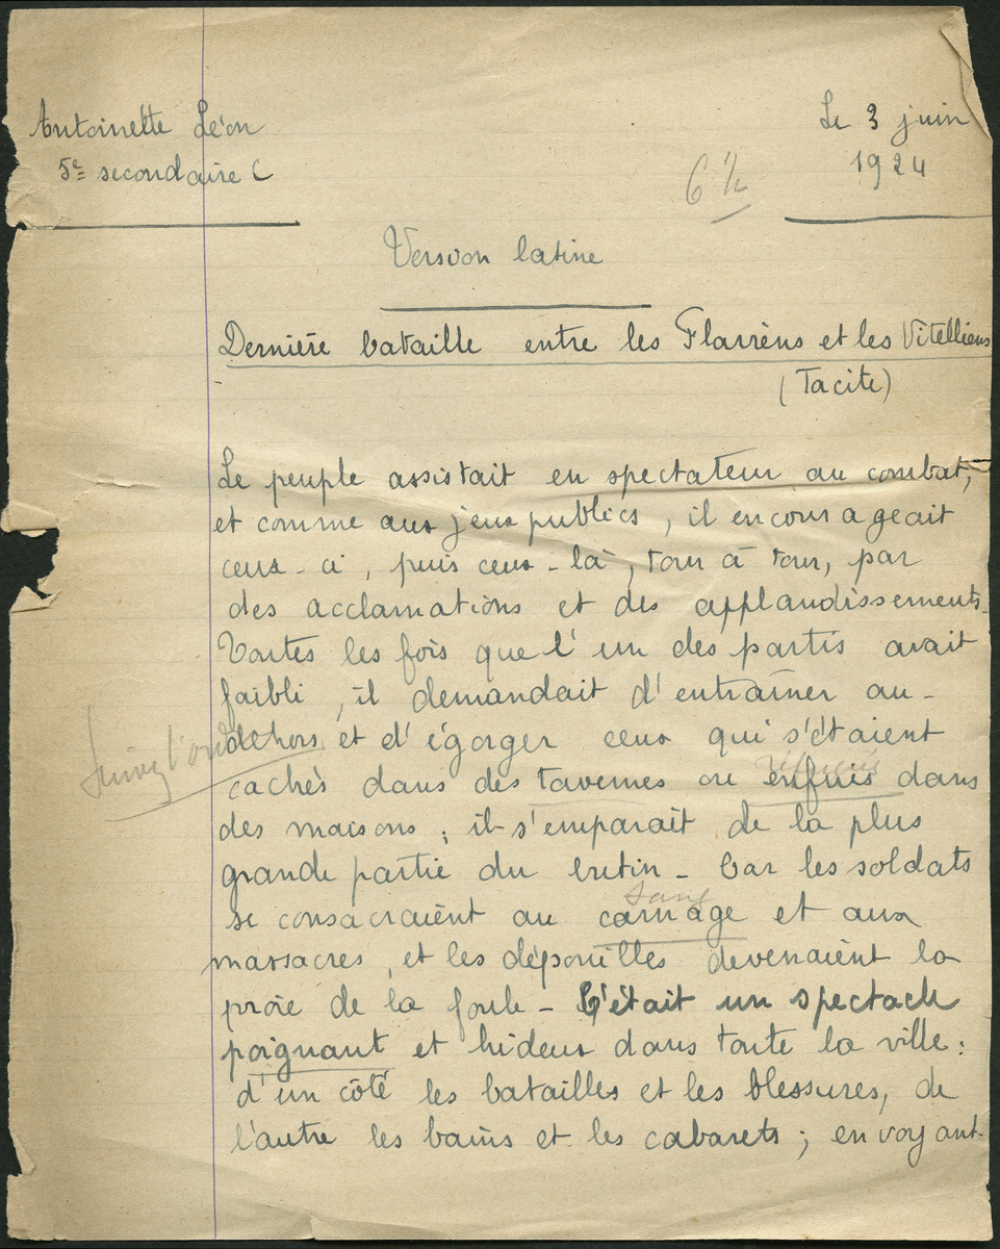 Antoinette Léon
Le 3 juin
5e secondaire C
1924
6 1/2
Version latine
Dernière bataille entre les Flaviens et les Vitelliens
(Tacite)
Le peuple assistait en spectateur au combat,
et comme aux jeux publics, il encourageait
ceux-ci, puis ceux-là, tour à tour, par
des acclamations et des applaudissements.
Toutes les fois que l'un des partis avait
faibli, il demandait d'entraîner au-
dehors et d'égorger ceux qui s'étaient
Suivez l'ordre
réfugiés
cachés dans des tavernes ou enfuis dans
des maisons ; il s'emparait de la plus
grande partie du butin - Car les soldats
sang
se consacraient au carnage et aux
massacres, et les dépouilles devenaient la
proie de la foule - C'était un spectacle
poignant et hideux dans toute la ville :
d'un côté les batailles et les blessures, de
l'autre les bains et les cabarets ; en voyant